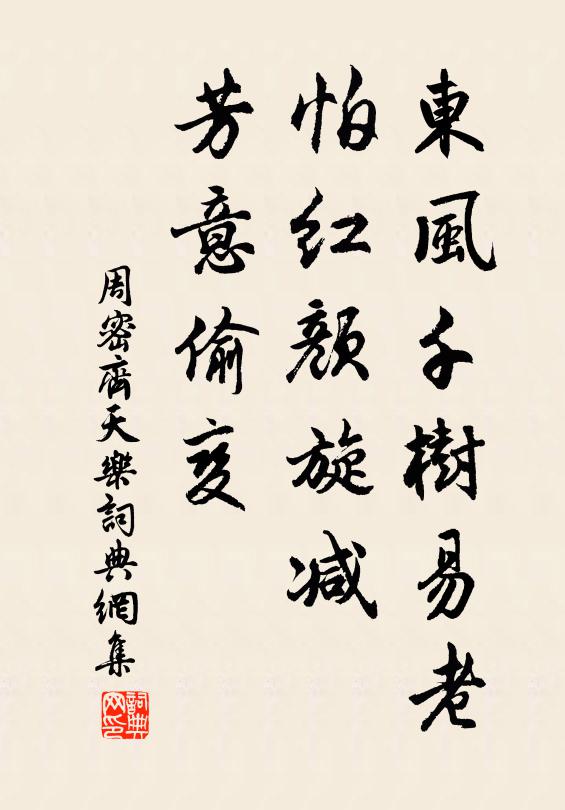 東風千樹易老
怕红顏旋减
芳意偷变
周密齊天樂詞典網集
詞典网印